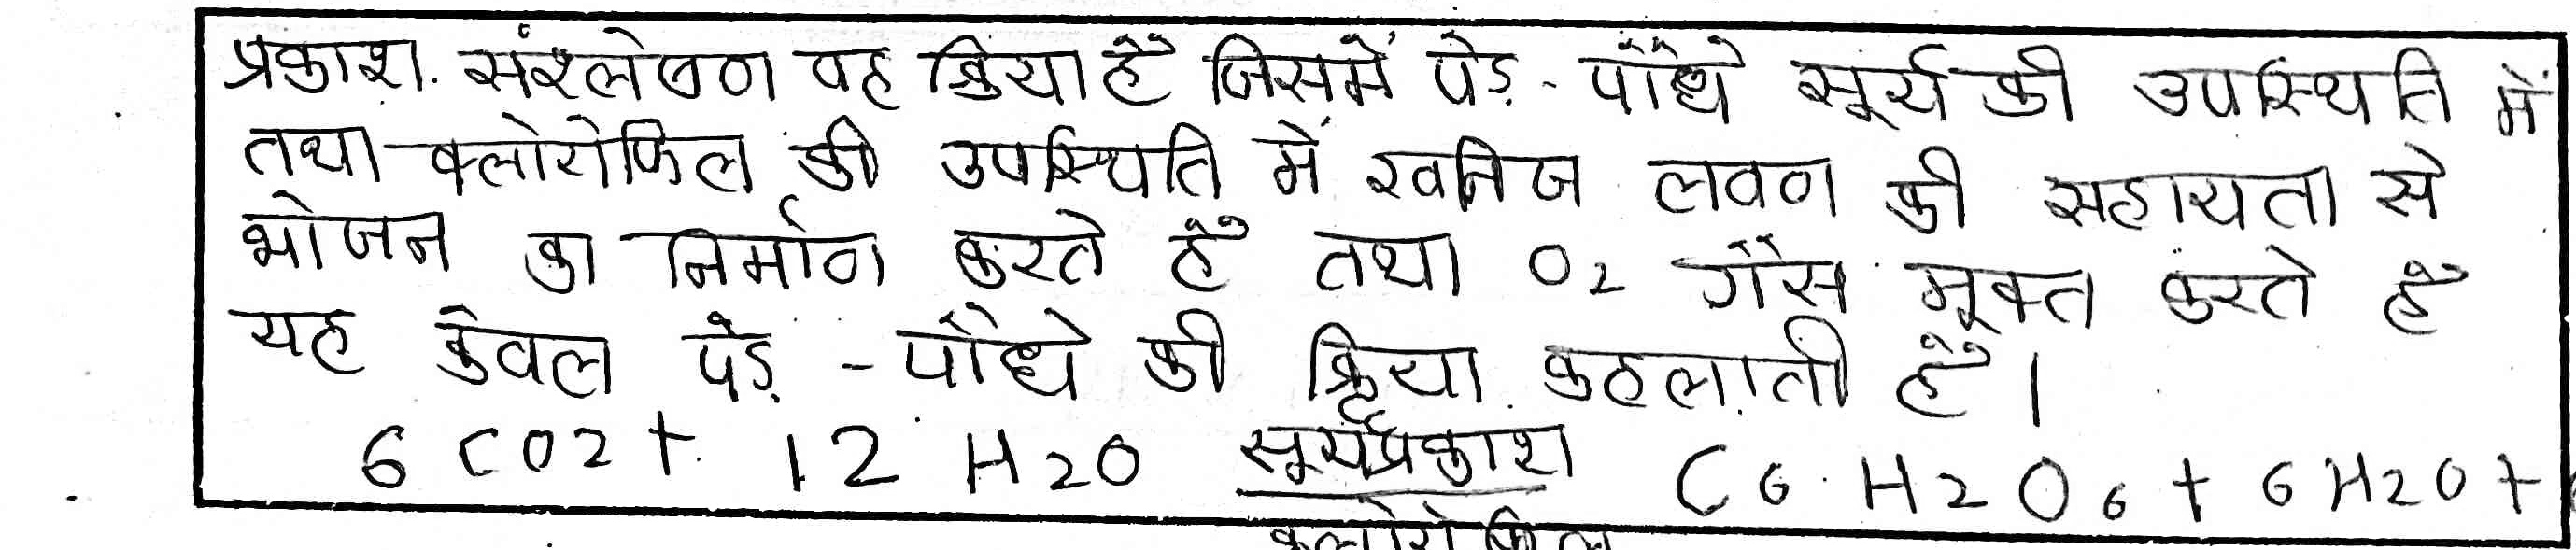 प्रकाश. संश्लेषण वह क्रिया है जिसमें पेड़ - पौधे सूर्य की उपस्थिति में
तथा क्लोरोफिल की उपस्थिति में खनिज लवण की सहायता से
भोजन का निर्माण करते है तथा O2 गैस मूक्त करते है
यह केवल पेड़ - पौधे की क्रिया कहलाती है।
6 CO2 + 12 H2O सूर्यप्रकाश C6 H2 O6 + 6 H2O +
क्लोरोफिल